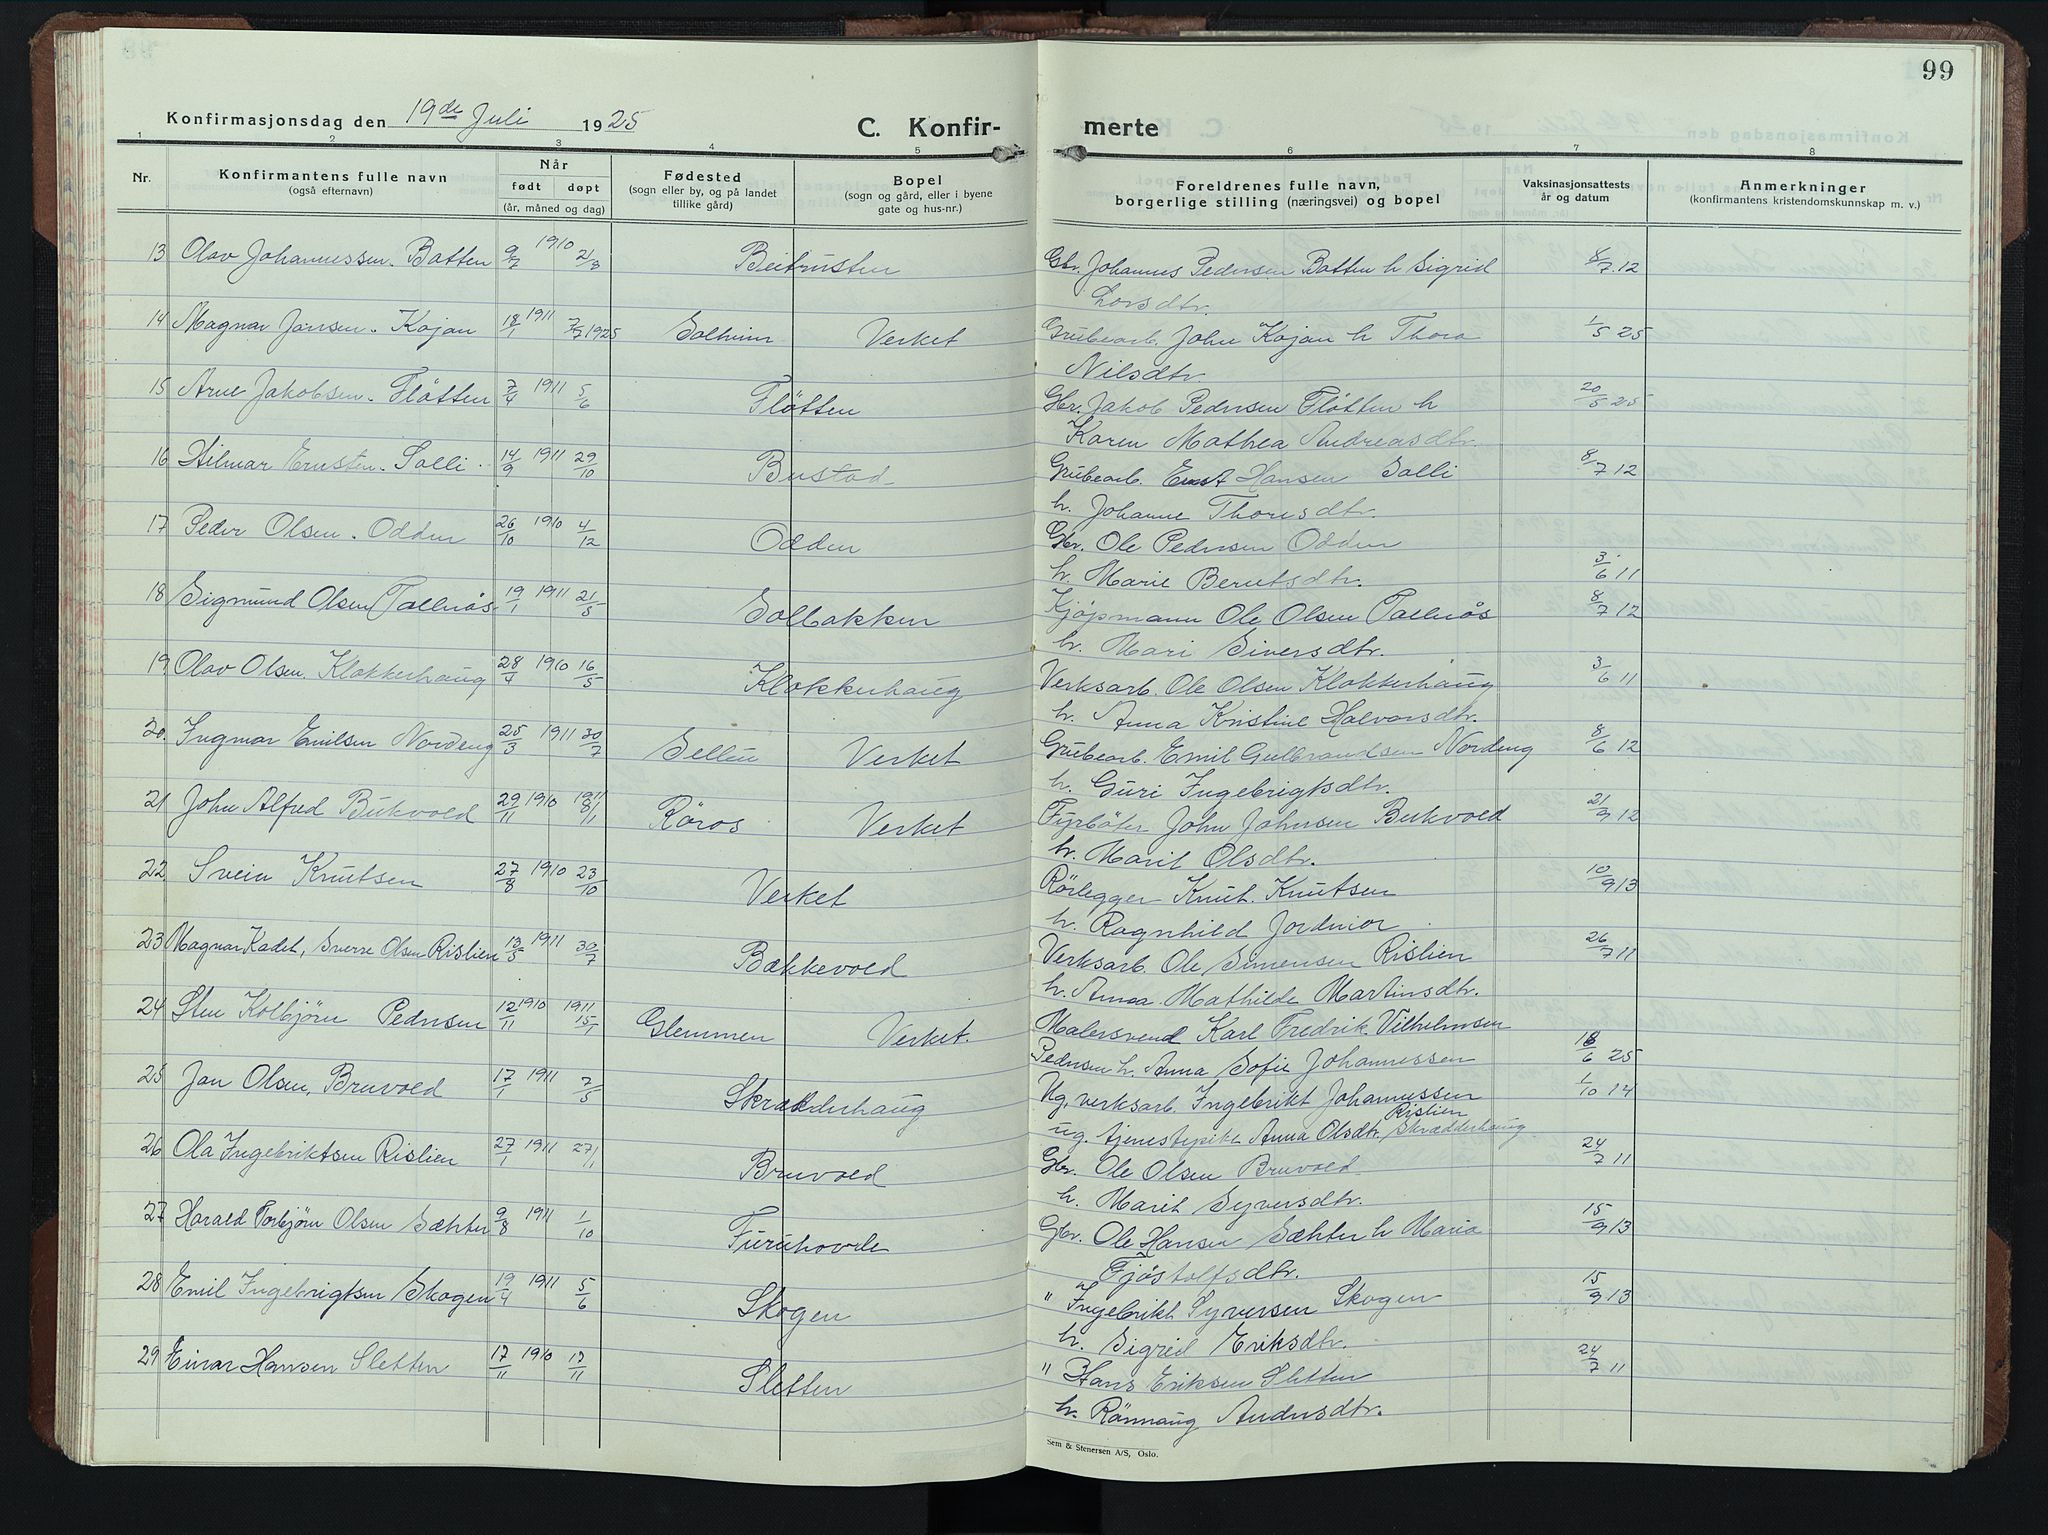 99
Konfirmasjonsdag den 19de Juli 1925
C. Konfir- merte
1 2 3 4 5 6 7 8
Nr.
Konfirmantens fulle navn
(også efternavn)
Når
født døpt
(år, måned og dag)
Fødested
(sogn eller by, og på landet
tillike gård)
Bopel
(sogn og gård, eller i byene
gate og hus-nr.)
Foreldrenes fulle navn,
borgerlige stilling (næringsvei) og bopel
Vaksinasjonsattests
år og datum
Anmerkninger
(konfirmantens kristendomskunnskap m. v.)
13 Olav Johannessen. Batten 9/7 1910 21/8 Beitrusten Gbr. Johannes Pedersen Batten h Sigrid 8/7 12
Larsdtr.
14 Magnar Jansen. Kojan 18/1 1911 7/7 1925 Solheim Verket Grubearb. John Kojan h Thora 1/5 25
Nilsdtr.
15 Arne Jakobsen. Fløtten 7/4 1911 5/6 Fløtten Gbr. Jakob Pedersen Fløtten h 20/5 25
Karen Mathea Andreasdtr.
16 Hilmar Ernsten. Solli. 14/9 1911 29/10 Bustad Grubearb. Ernst Hansen Solli 8/7 12
h. Johanne Thoresdtr.
17 Peder Olsen. Odden 26/10 1910 4/12 Odden Gbr. Ole Pedersen Odden
h. Marie Berntsdtr. 3/6 11
18 Sigmund Olsen Tallnås 19/1 1911 21/5 Solbakken Kjøpmann Ole Olsen Tallnås 8/7 12
h. Mari Siversdtr.
19 Olav Olsen. Klokkerhaug 28/4 1910 16/5 Klokkerhaug Verksarb. Ole Olsen Klokkerhaug 3/6 11
h. Anna Kristine Halvorsdtr.
20. Ingmar Emilsen Nordeng 25/3 1911 30/7 Selbu Verket Grubearb. Emil Gulbrandsen Nordeng 8/6 12
h. Guri Ingebrigtsdtr.
21 John Alfred Bukvold 29/11 1910 1911 8/1 Røros Verket Fyrbøter John Johnsen Bukvold 21/9 12
h. Marit Olsdtr.
22. Svein Knutsen 27/8 1910 23/10 Verket Rørlegger Knut. Knutsen 10/9 13
h. Ragnhild
23 Magnar Kadet, Sverre Olsen Rislien 13/5 1911 30/7 Bækkevold Verksarb. Ole Simensen Rislien 26/7 11
h. Anna Mathilde Martinsdtr.
24 Sten Kolbjørn Pedersen 12/11 1910 1911 15/1 Glemmen Verket. Malersvend Karl Fredrik Vilhelmsen
Pedersen h. Anna Sofie Johannessen 18/6 25
25 Jan Olsen, Bruvold 17/1 1911 7/5 Skrædderhaug Ug. verksarb. Ingebrikt Johannessen 1/10 14
Rislien
ug. tjenestepike Anna Olsdtr. Skrædderhaug
26 Ola Ingebriktsen Rislien 27/1 1911 27/1 Bruvold Gbr. Ole Olsen Bruvold 24/7 11
h. Marit Syversdtr.
27 Harald Torbjørn Olsen Sæhter 9/8 1911 1/10 Furuhovde Gbr. Ole Hansen Sæhter h Maria 15/9 13
Fjøstolfsdtr.
28 Emil Ingebrigtsen Skogen 19/4 1911 5/6 Skogen " Ingebrikt Syversen Skogen 15/9 13
h. Sigrid Eriksdtr.
29 Einar Hansen Sletten 17/11 1910 17/11 Sletten " Hans Eriksen Sletten 24/7 11
h. Rønnaug Andersdtr.
Sem & Stenersen A/S, Oslo.